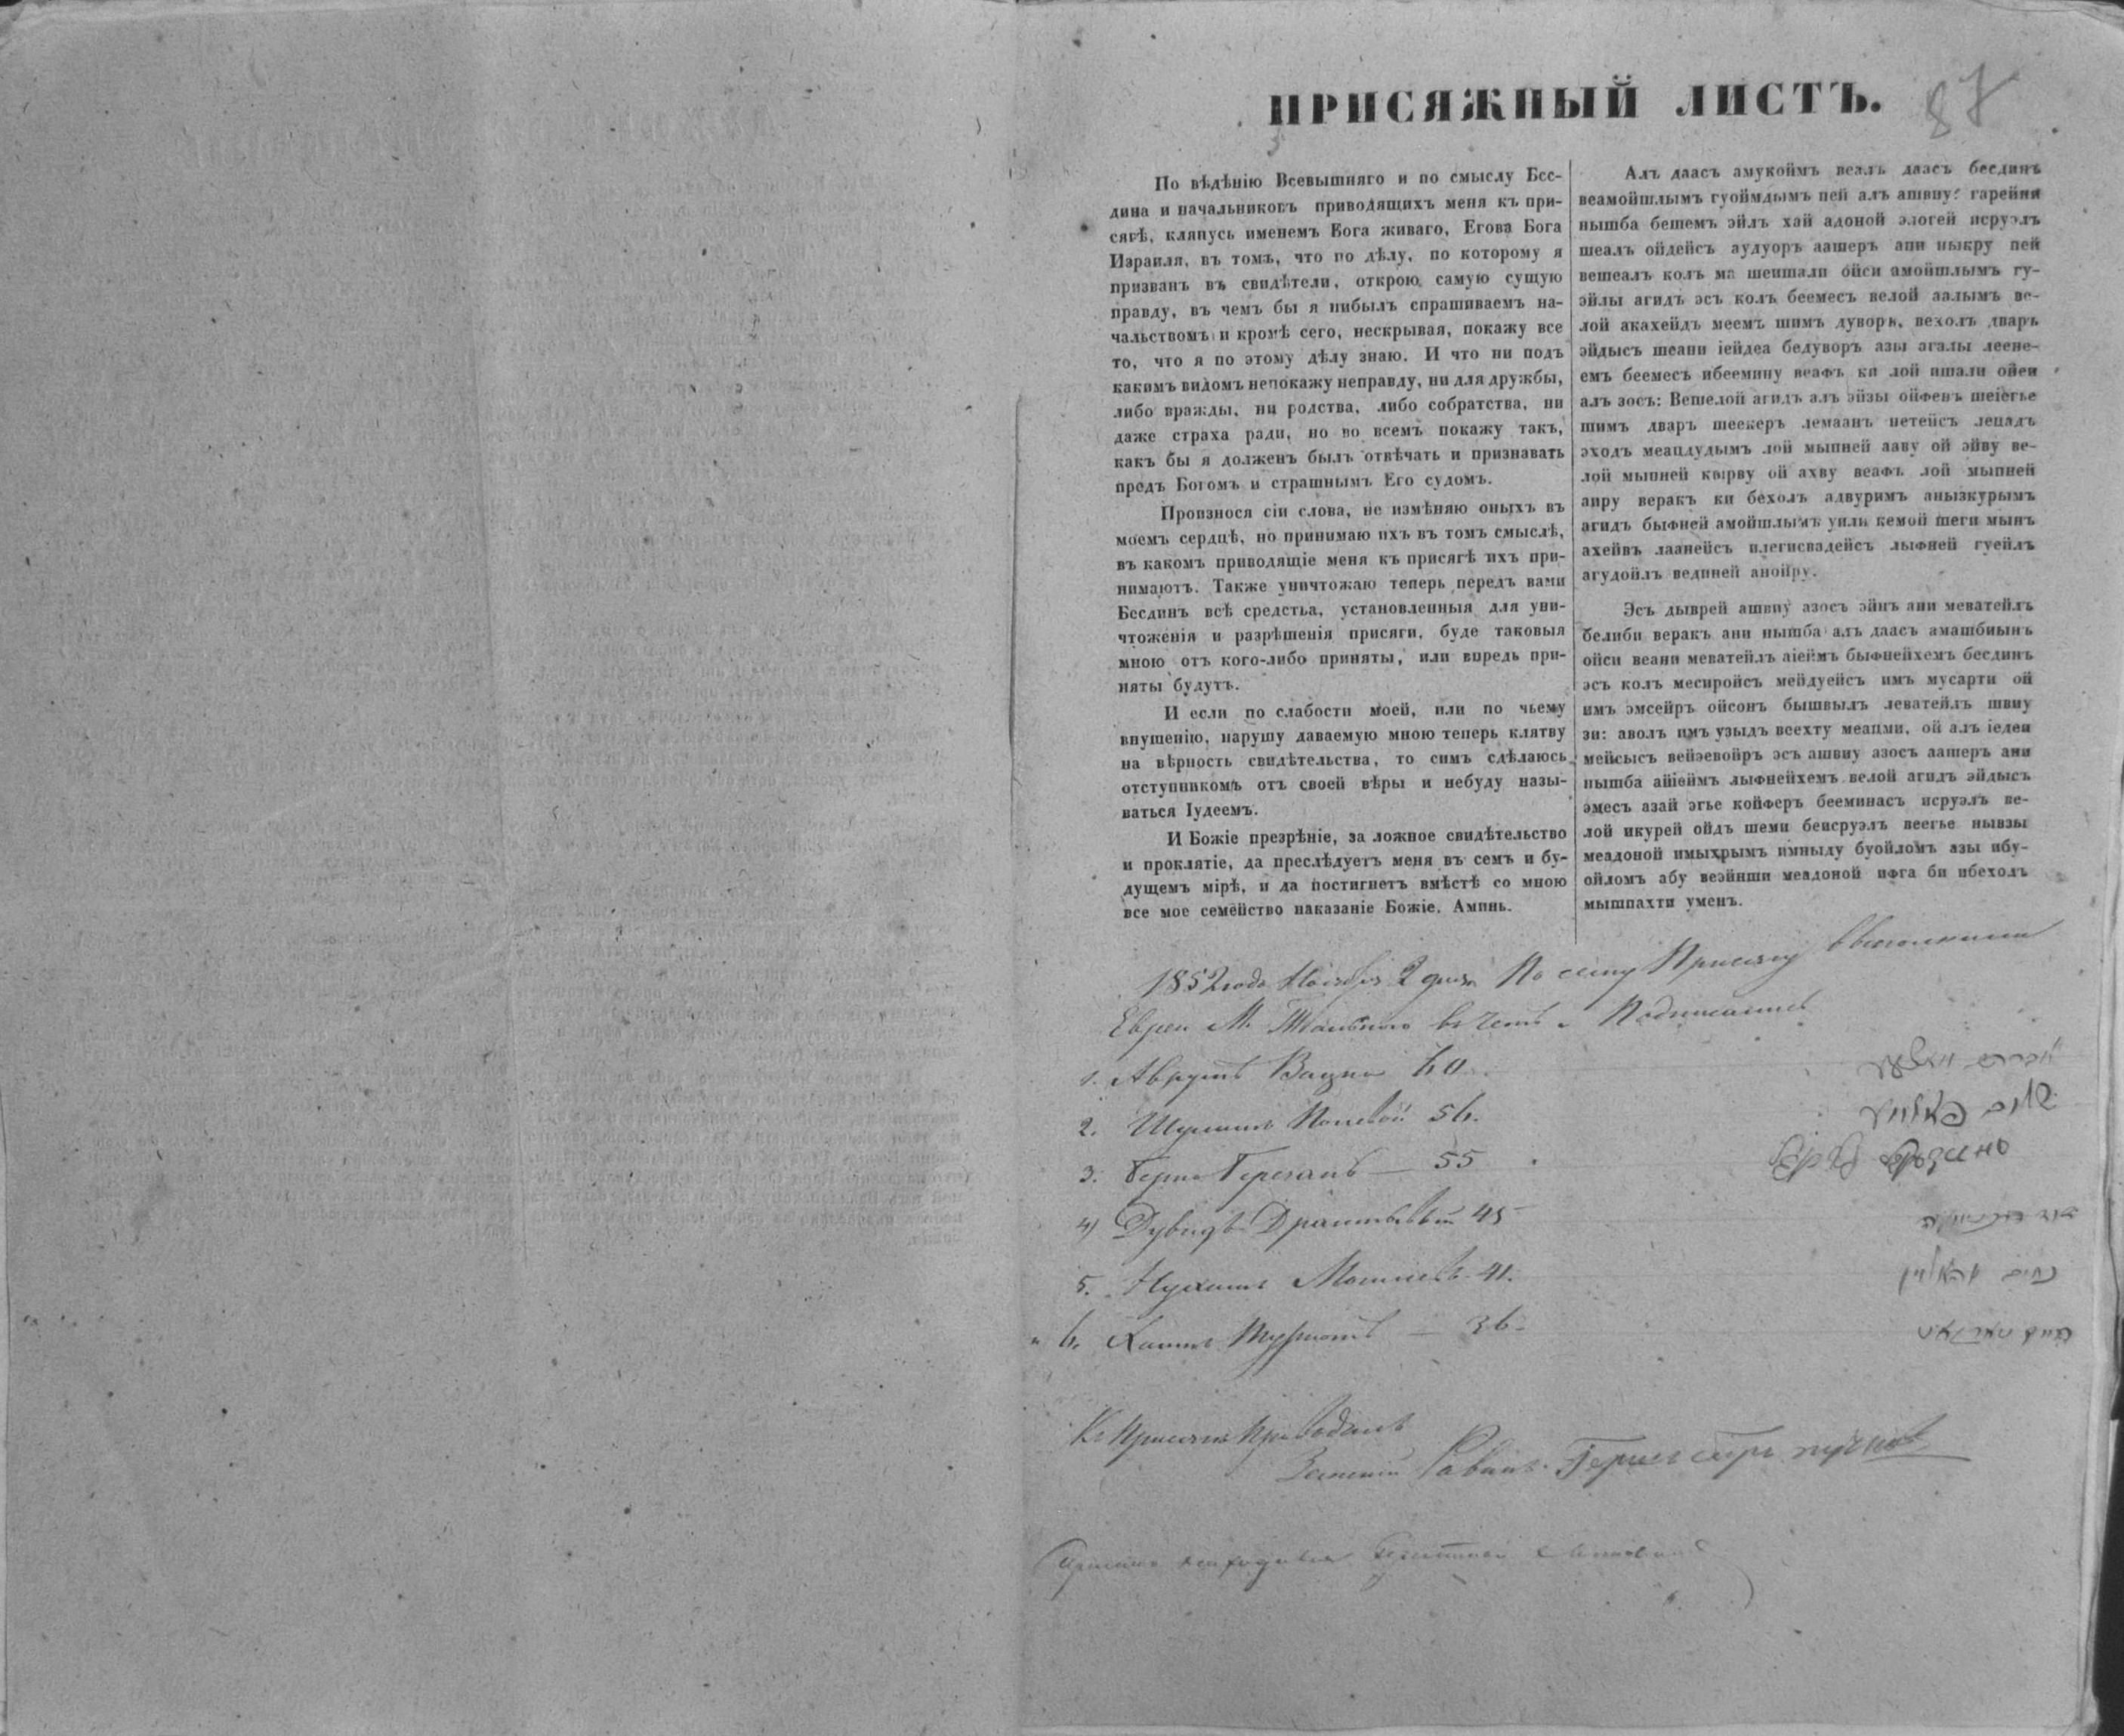 ПРИСЯЖНЫЙ ЛИСТЪ.
87
По вѣдѣнію Всевышняго и по смыслу Бес-
дина и начальниковъ приводящихъ меня къ при-
сягѣ, клянусь именемъ Бога живаго, Егова Бога
Израиля, въ томъ, что по дѣлу, по которому я
призванъ въ свидѣтели, открою самую сущую
правду, въ чемъ бы я нибылъ спрашиваемъ на-
чальствомъ и кромѣ сего, нескрывая, покажу все
то, что я по этому дѣлу знаю. И что ни подъ
какимъ видомъ непокажу неправду, ни для дружбы,
либо вражды, ни родства, либо собратства, ни
даже страха ради, но во всемъ покажу такъ,
какъ бы я долженъ былъ отвѣчать и признавать
предъ Богомъ и страшнымъ Его судомъ.
Произнося сіи слова, не измѣняю оныхъ въ
моемъ сердцѣ, но принимаю ихъ въ томъ смыслѣ,
въ какомъ приводящіе меня къ присягѣ ихъ при-
нимаютъ. Также уничтожаю теперь передъ вами
Бесдинъ всѣ средства, установленныя для уни-
чтоженія и разрѣшенія присяги, буде таковыя
мною отъ кого-либо приняты, или впредь при-
няты будутъ.
И если по слабости моей, или по чьему
внушенію, нарушу даваемую мною теперь клятву
на вѣрность свидѣтельства, то симъ сдѣлаюсь
отступникомъ отъ своей вѣры и небуду назы-
ваться Іудеемъ.
И Божіе презрѣніе, за ложное свидѣтельство
и проклятіе, да преслѣдуетъ меня въ семъ и бу-
дущемъ мірѣ, и да постигнетъ вмѣстѣ со мною
все мое семейство наказаніе Божіе. Аминь.
Алъ даасъ амукоймъ веалъ даасъ бесдинъ
веамойшлымъ гуоймдымъ пей алъ ашвну: гарейни
нышба бешемъ эйлъ хай адоной элогей исруэлъ
шеалъ ойдейсъ аудуоръ аашеръ ани ныкру пей
вешеалъ колъ ма шеишали ойси амойшлымъ гу-
эйлы агидъ эсъ колъ беемесъ велой аалымъ ве-
лой акахейдъ меемъ шимъ дуворъ, вехолъ дваръ
эйдысъ шеани іейдеа бедуворъ азы агалы леене-
емъ беемесъ ибеемину веафъ ки лой ишали ойси
алъ зосъ: Вешелой агидъ алъ эйзы ойфенъ шеіегье
шимъ дваръ шеекеръ лемаанъ нетейсъ лецадъ
эходъ меацдудымъ лой мыпней ааву ой эйву ве-
лой мыпней кырву ой ахву веафъ лой мыпней
апру веракъ ки бехолъ адвуримъ анызкурымъ
агидъ быфней амойшлымъ уили кемой шеги мынъ
ахейвъ лаанейсъ илегисвадейсъ лыфней гуейлъ
агудойлъ ведпней анойру.
Эсъ дыврей ашвну азосъ эйнъ ани меватейлъ
белиби веракъ ани нышба алъ даасъ амашбиынъ
ойси веани меватейлъ аіеймъ быфнейхемъ бесдинъ
эсъ колъ месиройсъ мейдуейсъ имъ мусарти ой
имъ эмсейръ ойсонъ бышвылъ леватейлъ швну
зи: аволъ имъ узыдъ всехту меапми, ой алъ іедеи
мейсысъ вейэевойръ эсъ ашвну азосъ аашеръ ани
нышба айіеймъ лыфнейхемъ велой агидъ эйдысъ
эмесъ азай эгье койферъ бееминасъ исруэлъ ве-
лой икурей ойдъ шеми бенсруэлъ веегье нывзы
меадоной имыхрымъ имныду буойломъ азы ибу-
ойломъ абу веэйнши меадоной ифга би ибехолъ
мышпахти уменъ.
1852 года Ноября 2 дня По сему Присягу выполнили
Евреи М. въ чемъ и Подписались
1. Аврумъ 60
2. Шулимъ Полевой 56.
3. 55
4) Дувидъ 45
5. Нухимъ 41.
6. Хаимъ — 36.
Къ Присяге Приводилъ
Равинъ.